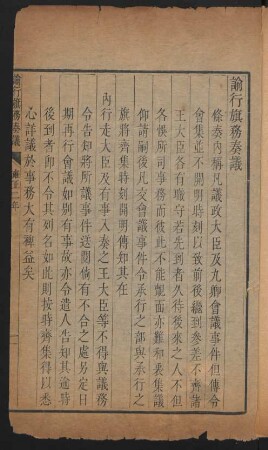 諭行旗務奏議
條奏內稱凡議政大臣及九卿會議事件但傳令
會集並不開明時刻以致前後纔到參差不齊諸
王大臣各有職守若先到者久待後來之人不但
各悞所司事務而彼此不能覿面亦難和衷集議
仰請嗣後凡交會議事件令承行之部與承行之
旗將齊集時刻開明傳知其在
內行走大臣及有事入奏之王大臣等不得與議
令告知將所議事件送閱倘有不合之處另定日
期再行會議如別有事故亦令遣人告知其逾時
後到者即不令其列名如此則按時齊集得以悉
心詳議於事務大有裨益矣
諭行旗務奏議
雍正二年